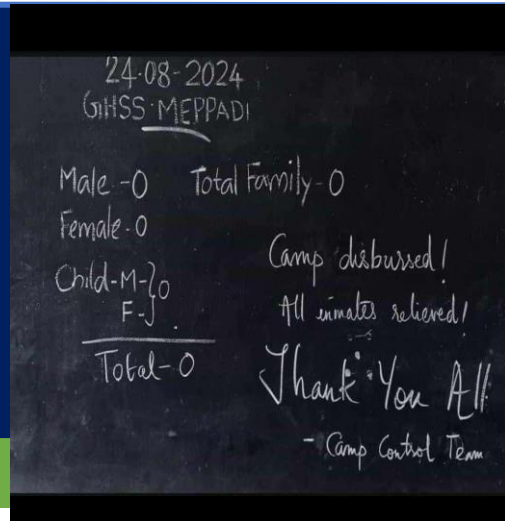 24-08-2024
GHSS MEPPADI
Male - 0 Total Family - 0
Female - 0
Child - M - } 0
F - }
Total - 0
Camp disbursed!
All inmates relieved!
Thank You All
- Camp Control Team